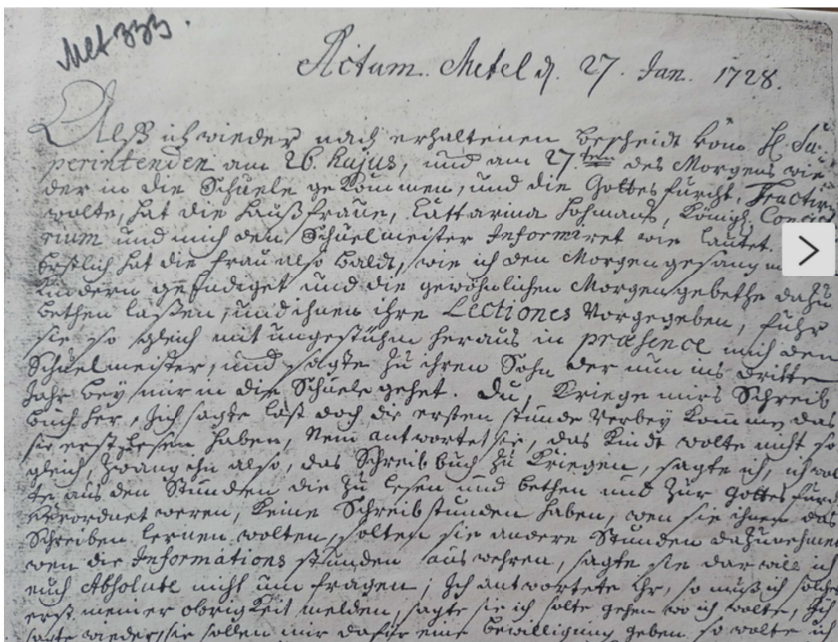 Met 333.
Actum Metel d. 27. Jan. 1728.
Alß ich wieder nach erhaltenen bescheidt vom H. Su-
perintenden am 26. hujus, und am 27ten des Morgens wie
der in die Schuele gekommen, und die Gottes furcht,
wolte, hat die haußfraue, Cattarina Königl.
rium und mich den Schuelmeister Informiret wie lautet.
Erstlich hat die frau also baldt, wie ich den Morgengesang
Kindern geendiget und die gewöhnlichen Morgengebethe dazu
bethen laßen, und ihnen ihre Lectiones Vorgegeben, fuhr
sie so gleich mit ungestühm heraus in præsence mich den
Schuelmeister, und sagte zu ihren Sohn der nun ins dritte
Jahr bey mir in die Schuele gehet. Du, Kriege mirs Schreib
buch her, Ich sagte laß doch die ersten stunde Verbey Kommen das
sie erst lesen haben, Nein antwortet sie, das Kindt wolte nicht so
gleich, Zwang ihn also, das Schreib buch zu Kriegen, sagte ich, ich wol
te aus den Stunden die zu lesen und bethen und zur Gottes furcht
Verordnet weren, Keine Schreibstunden haben, wen sie ihnen das
Schreiben lernen wolten, solten sie andere Stunden dazu nehmen
wen die Informations stunden aus wehren, sagte sie dar will ich
euch Absolute nicht um fragen; Ich antwortete ihr, so muß ich solches
erst meiner obrigkeit melden, sagte sie ich solte gehen wo ich wolte, Ich
sagte wieder, sie sollen mir dafür eine bewilligung geben, so wolte